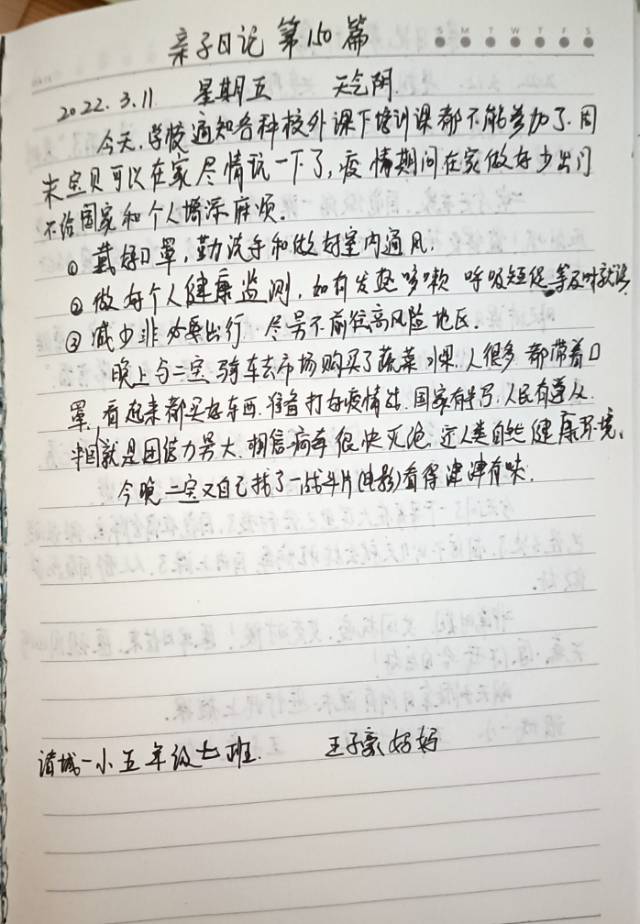 亲子日记 第150篇
S M T W T F S
2022.3.11 星期五 天气阴
今天,学校通知各种校外课下培训课都不能参加了.周
末宝贝可以在家尽情玩一下了,疫情期间在家做好少出门
不给国家和个人增添麻烦.
① 戴好口罩,勤洗手和做好室内通风.
② 做好个人健康监测,如有发热咳嗽 呼吸短促等及时就诊
③ 减少非必要出行.尽量不前往高风险地区.
晚上与二宝骑车去市场购买了蔬菜水果.人很多 都带着口
罩.看起来都买好东西.准备打好疫情战.国家有号召.人民有遵从.
中国就是团结力量大.相信病毒很快灭绝.还人类自然健康环境.
今晚二宝又自己找了一战斗片(电影)看得津津有味.
诸城一小五年级七班 王子豪妈妈